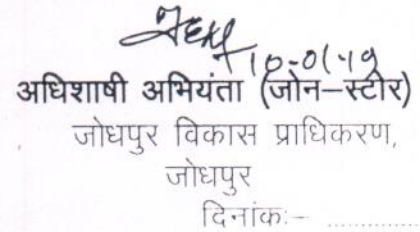 10-01-19
अधिशाषी अभियंता (जोन–स्टोर)
जोधपुर विकास प्राधिकरण,
जोधपुर
दिनांकः– ................